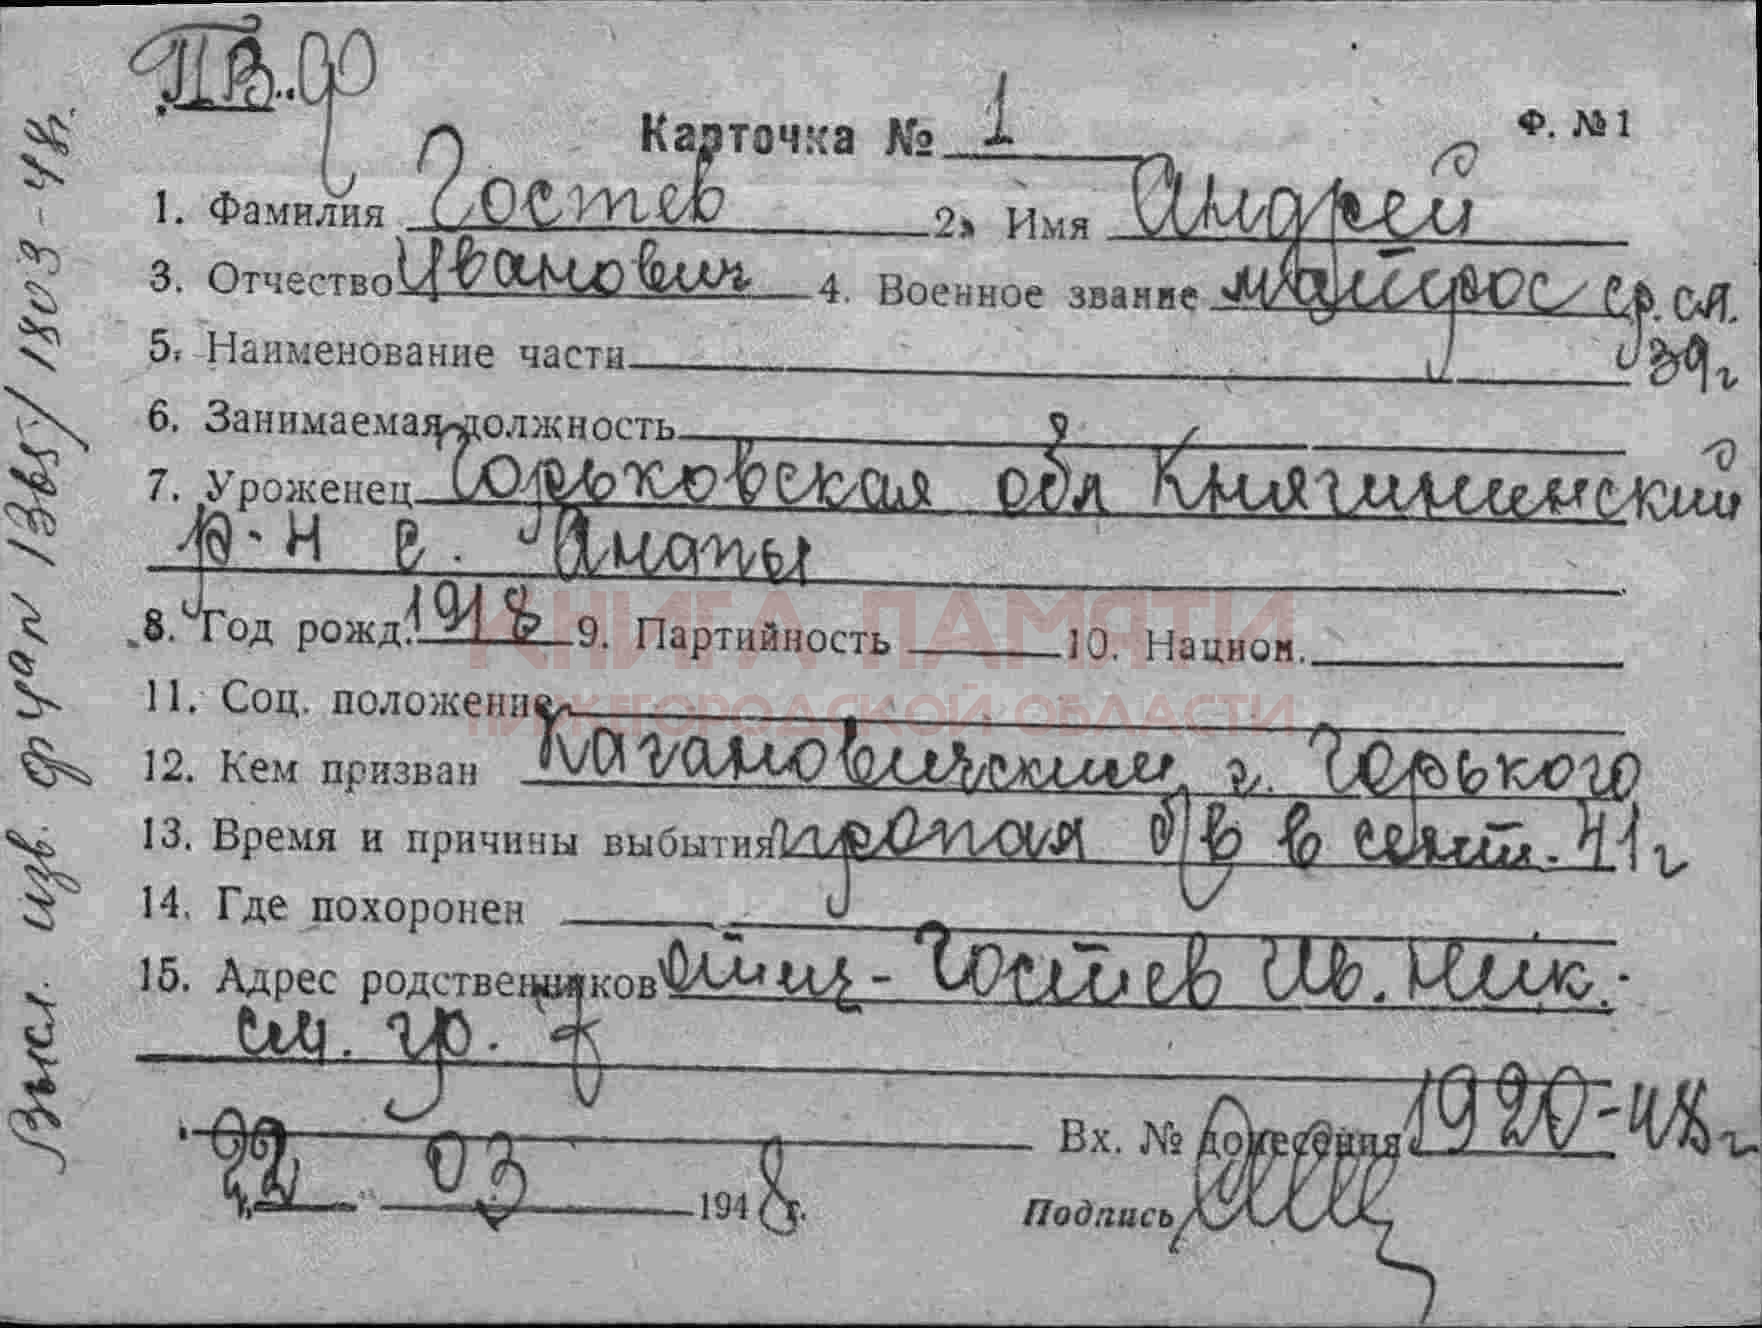 ПВ..
Карточка № 1
Ф. №1
1. Фамилия Гостев 2. Имя Андрей
3. Отчество Иванович 4. Военное звание матрос ср. сл.
39г
5. Наименование части
6. Занимаемая должность
7. Уроженец Горьковская обл Княгининский
р-н с. Анапы
8. Год рожд. 1918 9. Партийность 10. Национ.
11. Соц. положение
12. Кем призван Кагановичским г. Горького
13. Время и причины выбытия пропал б/в в сент. 41г
14. Где похоронен
15. Адрес родственников отец - Гостев Ив. Ник.
см. гр. 7
Вх. № донесения 1920-48г
22 03 1948 г.
Подпись
Высл. изв. 1803-48г.
КНИГА ПАМЯТИ
НИЖЕГОРОДСКОЙ ОБЛАСТИ